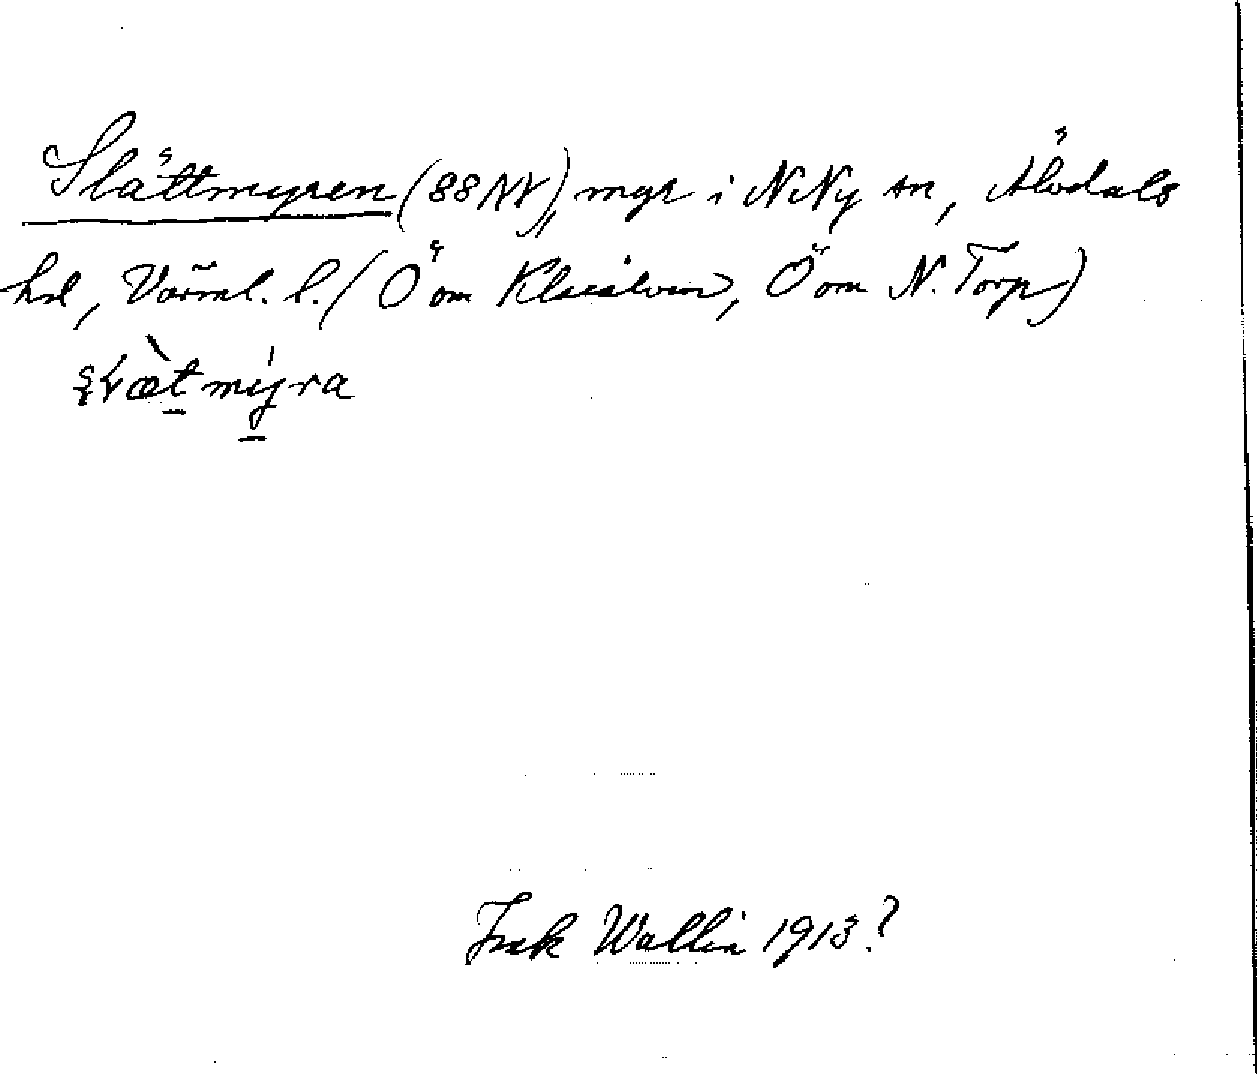 Slättmyren (88 NV), myr i N Ny sn, Älvdals
hd, Värml. l. (Ö om Klarälven, Ö om N. Torp)
Frek Wallin 1913?